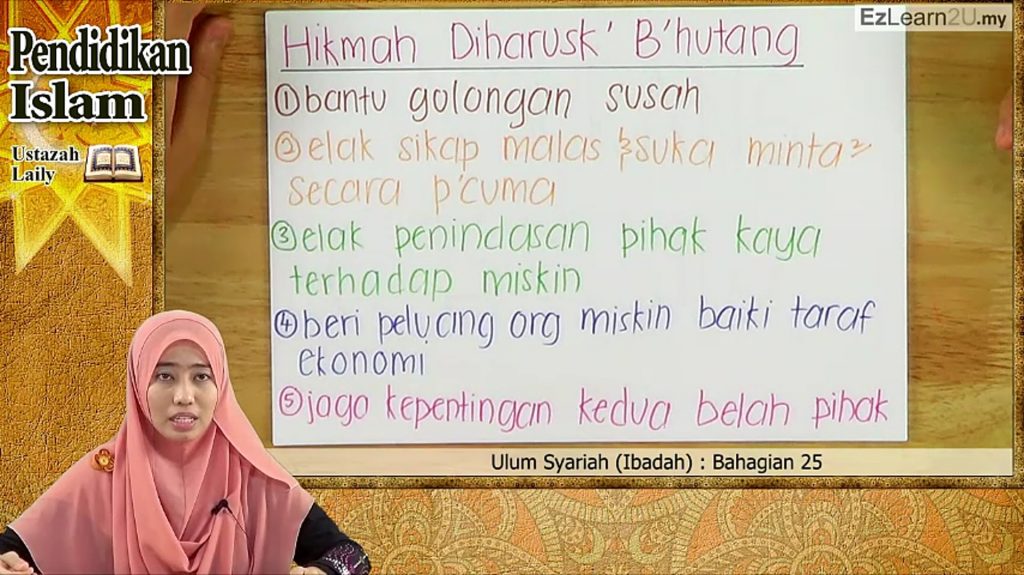 Pendidikan
Islam
Ustazah
Laily
EzLearn2U.my
Hikmah Diharusk' B'hutang
① bantu golongan susah
② elak sikap malas & suka minta²
secara p'cuma
③ elak penindasan pihak kaya
terhadap miskin
④ beri peluang org miskin baiki taraf
ekonomi
⑤ jaga kepentingan kedua belah pihak
Ulum Syariah (Ibadah) : Bahagian 25